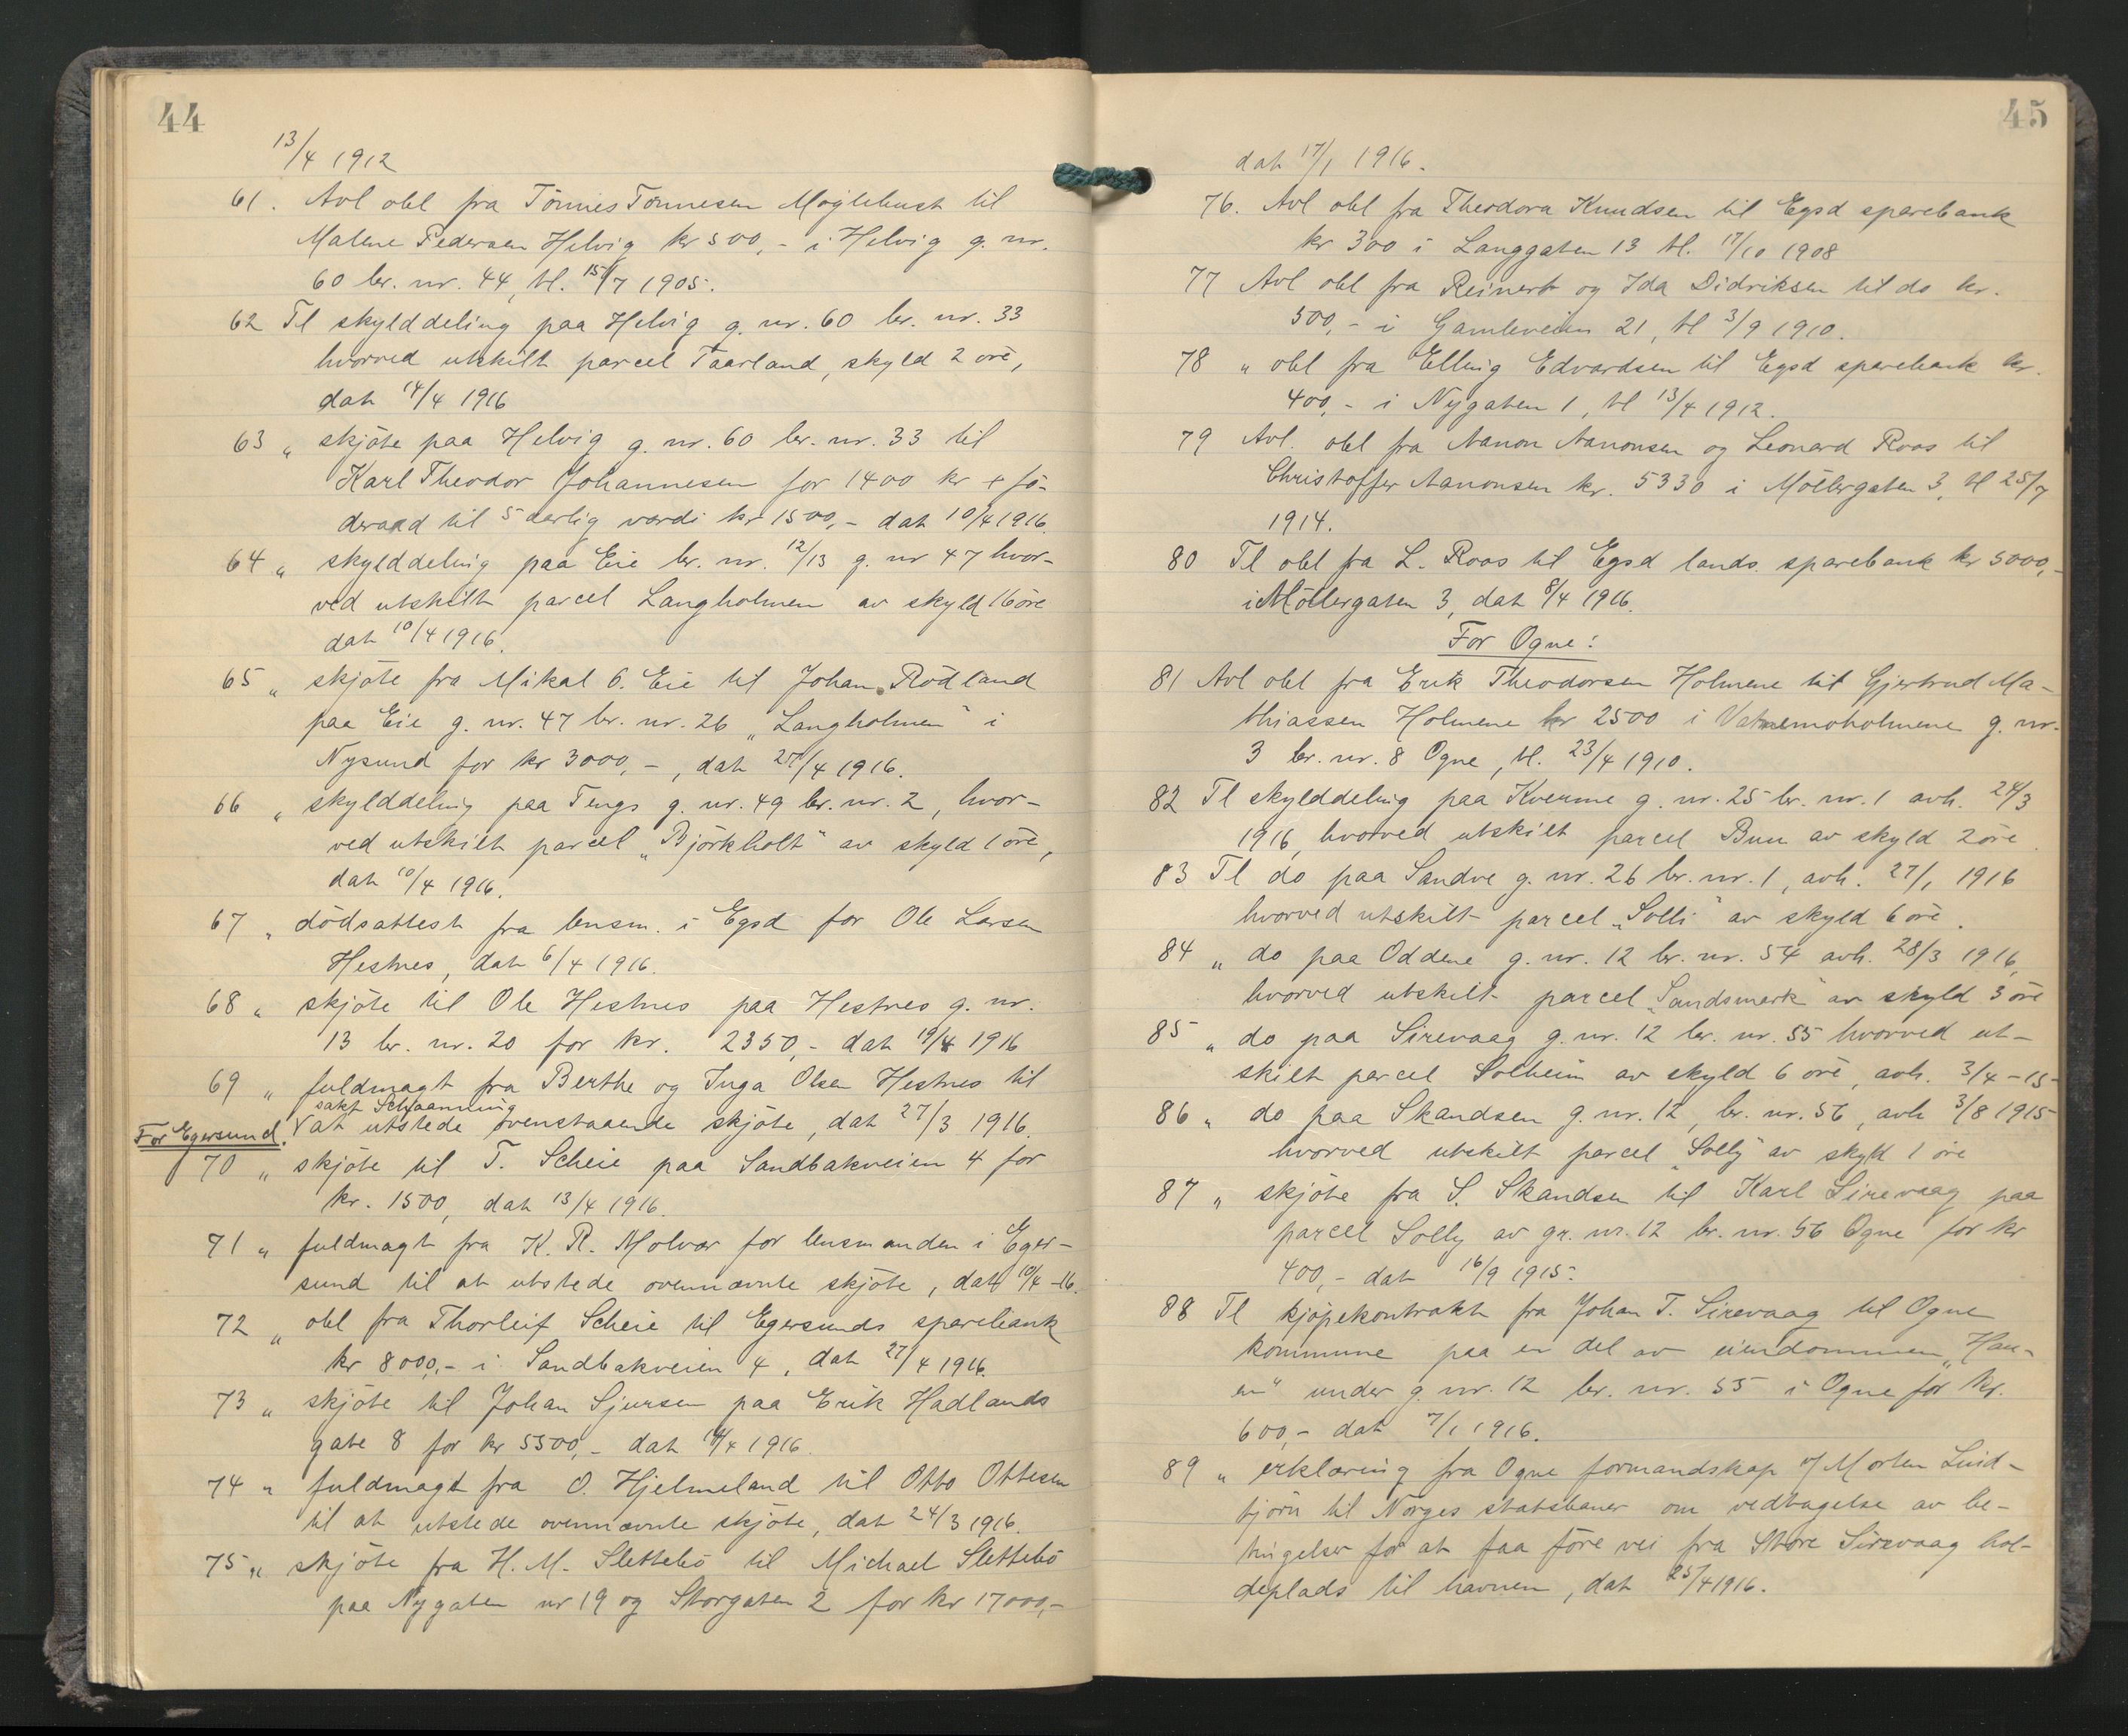 44
13/4 1912
61. Avl obl fra Tönnes Tönnesen Möglebust til
Malene Pedersen Helvig kr 500,- i Helvig g. nr.
60 br. nr. 44, tl. 15/7 1905.
62 Tl skylddeling paa Helvig g. nr. 60 br. nr. 33
hvorved utskilt parcel Taarland, skyld 2 öre,
dat 14/4 1916
63 „ skjöte paa Helvig g. nr. 60 br. nr. 33 til
Karl Theodor Johannesen for 1400 kr + fö-
deraad til 5 aarlig værdi kr 1500,- dat 10/4 1916.
64 „ skylddeling paa Eie br. nr. 12/13 g. nr 47 hvor-
ved utskilt parcel Langholmen av skyld 16 öre
dat 10/4 1916.
65 „ skjöte fra Mikal O. Eie til Johan Rödland
paa Eie g. nr. 47 br. nr. 26 „Langholmen" i
Nysund for kr 3000,-, dat 27/4 1916.
66 „ skylddeling paa Tengs g. nr. 49 br. nr. 2, hvor-
ved utskilt parcel „Björkholt" av skyld 1 öre,
dat 10/4 1916.
67 „ dödsattest fra lensm. i Egsd for Ole Larsen
Hestnes, dat 6/4 1916.
68 „ skjöte til Ole Hestnes paa Hestnes g. nr.
13 br. nr. 20 for kr. 2350,- dat 19/4 1916
69 „ fuldmagt fra Berthe og Inga Olsen Hestnes til
sakf Schaanning
at utstede ovenstaaende skjöte, dat 27/3 1916.
For Egersund.
70 „ skjöte til T. Scheie paa Sandbakveien 4 for
kr. 1500, dat 13/4 1916.
71 „ fuldmagt fra K. R. Molvær for lensmanden i Eger-
sund til at utstede ovennævnte skjöte, dat 10/4 -16.
72 „ obl fra Thorleif Scheie til Egersunds sparebank
kr 8000,- i Sandbakveien 4, dat 27/4 1916.
73 „ skjöte til Johan Sjursen paa Erik Hadlands
gate 8 for kr 5500,- dat 14/4 1916.
74 „ fuldmagt fra O. Hjelmeland til Otto Ottesen
til at utstede ovennævnte skjöte, dat 24/3 1916.
75 „ skjöte fra H. M. Slettebö til Michael Slettebö
paa Nygaten nr 19 og Storgaten 2 for kr 17000,-
45
dat 17/1 1916.
76. Avl obl fra Theodora Knudsen til Egsd sparebank
kr 300 i Langgaten 13 tl. 17/10 1908
77 Avl obl fra Reinert og Ida Didriksen til do kr.
500,- i Gamleveien 21, tl 3/9 1910.
78 „ obl fra Elling Edvardsen til Egsd sparebank kr.
400,- i Nygaten 1, tl 13/4 1912.
79 Avl. obl fra Aanon Aanonsen og Leonard Roos til
Christoffer Aanonsen kr. 5330 i Möllergaten 3, tl 25/7
1914.
80 Tl obl fra L. Roos til Egsd lands. sparebank kr 5000,-
i Möllergaten 3, dat 8/4 1916.
For Ogne:
81 Avl obl fra Erik Theodorsen Holmene til Gjertrud Ma-
thiassen Holmene kr 2500 i Vatnemoholmene g. nr.
3 br. nr. 8 Ogne, tl. 23/4 1910.
82 Tl skylddeling paa Kverme g. nr. 25 br. nr. 1 avh. 24/3
1916, hvorved utskilt parcel Buu av skyld 2 öre.
83 Tl do paa Sandve g. nr. 26 br. nr. 1, avh. 27/1 1916
hvorved utskilt parcel „Solli" av skyld 6 öre.
84 „ do paa Oddene g. nr. 12 br. nr. 54 avh. 28/3 1916,
hvorved utskilt parcel „Sandsmark" av skyld 3 öre
85 „ do paa Sirevaag g. nr. 12 br. nr. 55 hvorved ut-
skilt parcel Solheim av skyld 6 öre, avh. 3/4 -15
86 „ do paa Skandsen g. nr. 12, br. nr. 56, avh 3/8 1915
hvorved utskilt parcel „Solly" av skyld 1 öre
87 „ skjöte fra S. Skandsen til Karl Sirevaag paa
parcel Solly av gr. nr. 12 br. nr. 56 Ogne for kr
400,- dat 16/9 1915.
88 Tl kjöpekontrakt fra Johan T. Sirevaag til Ogne
kommune paa en del av eiendommen „Hau-
en" under g. nr. 12 br. nr. 55 i Ogne for kr.
600,- dat 7/1 1916.
89 „ erklæring fra Ogne formandskap v/ Morten Lind-
björn til Norges statsbaner om vedtagelse av be-
tingelser for at faa före vei fra Store Sirevaag hol-
deplads til havnen, dat 25/4 1916.